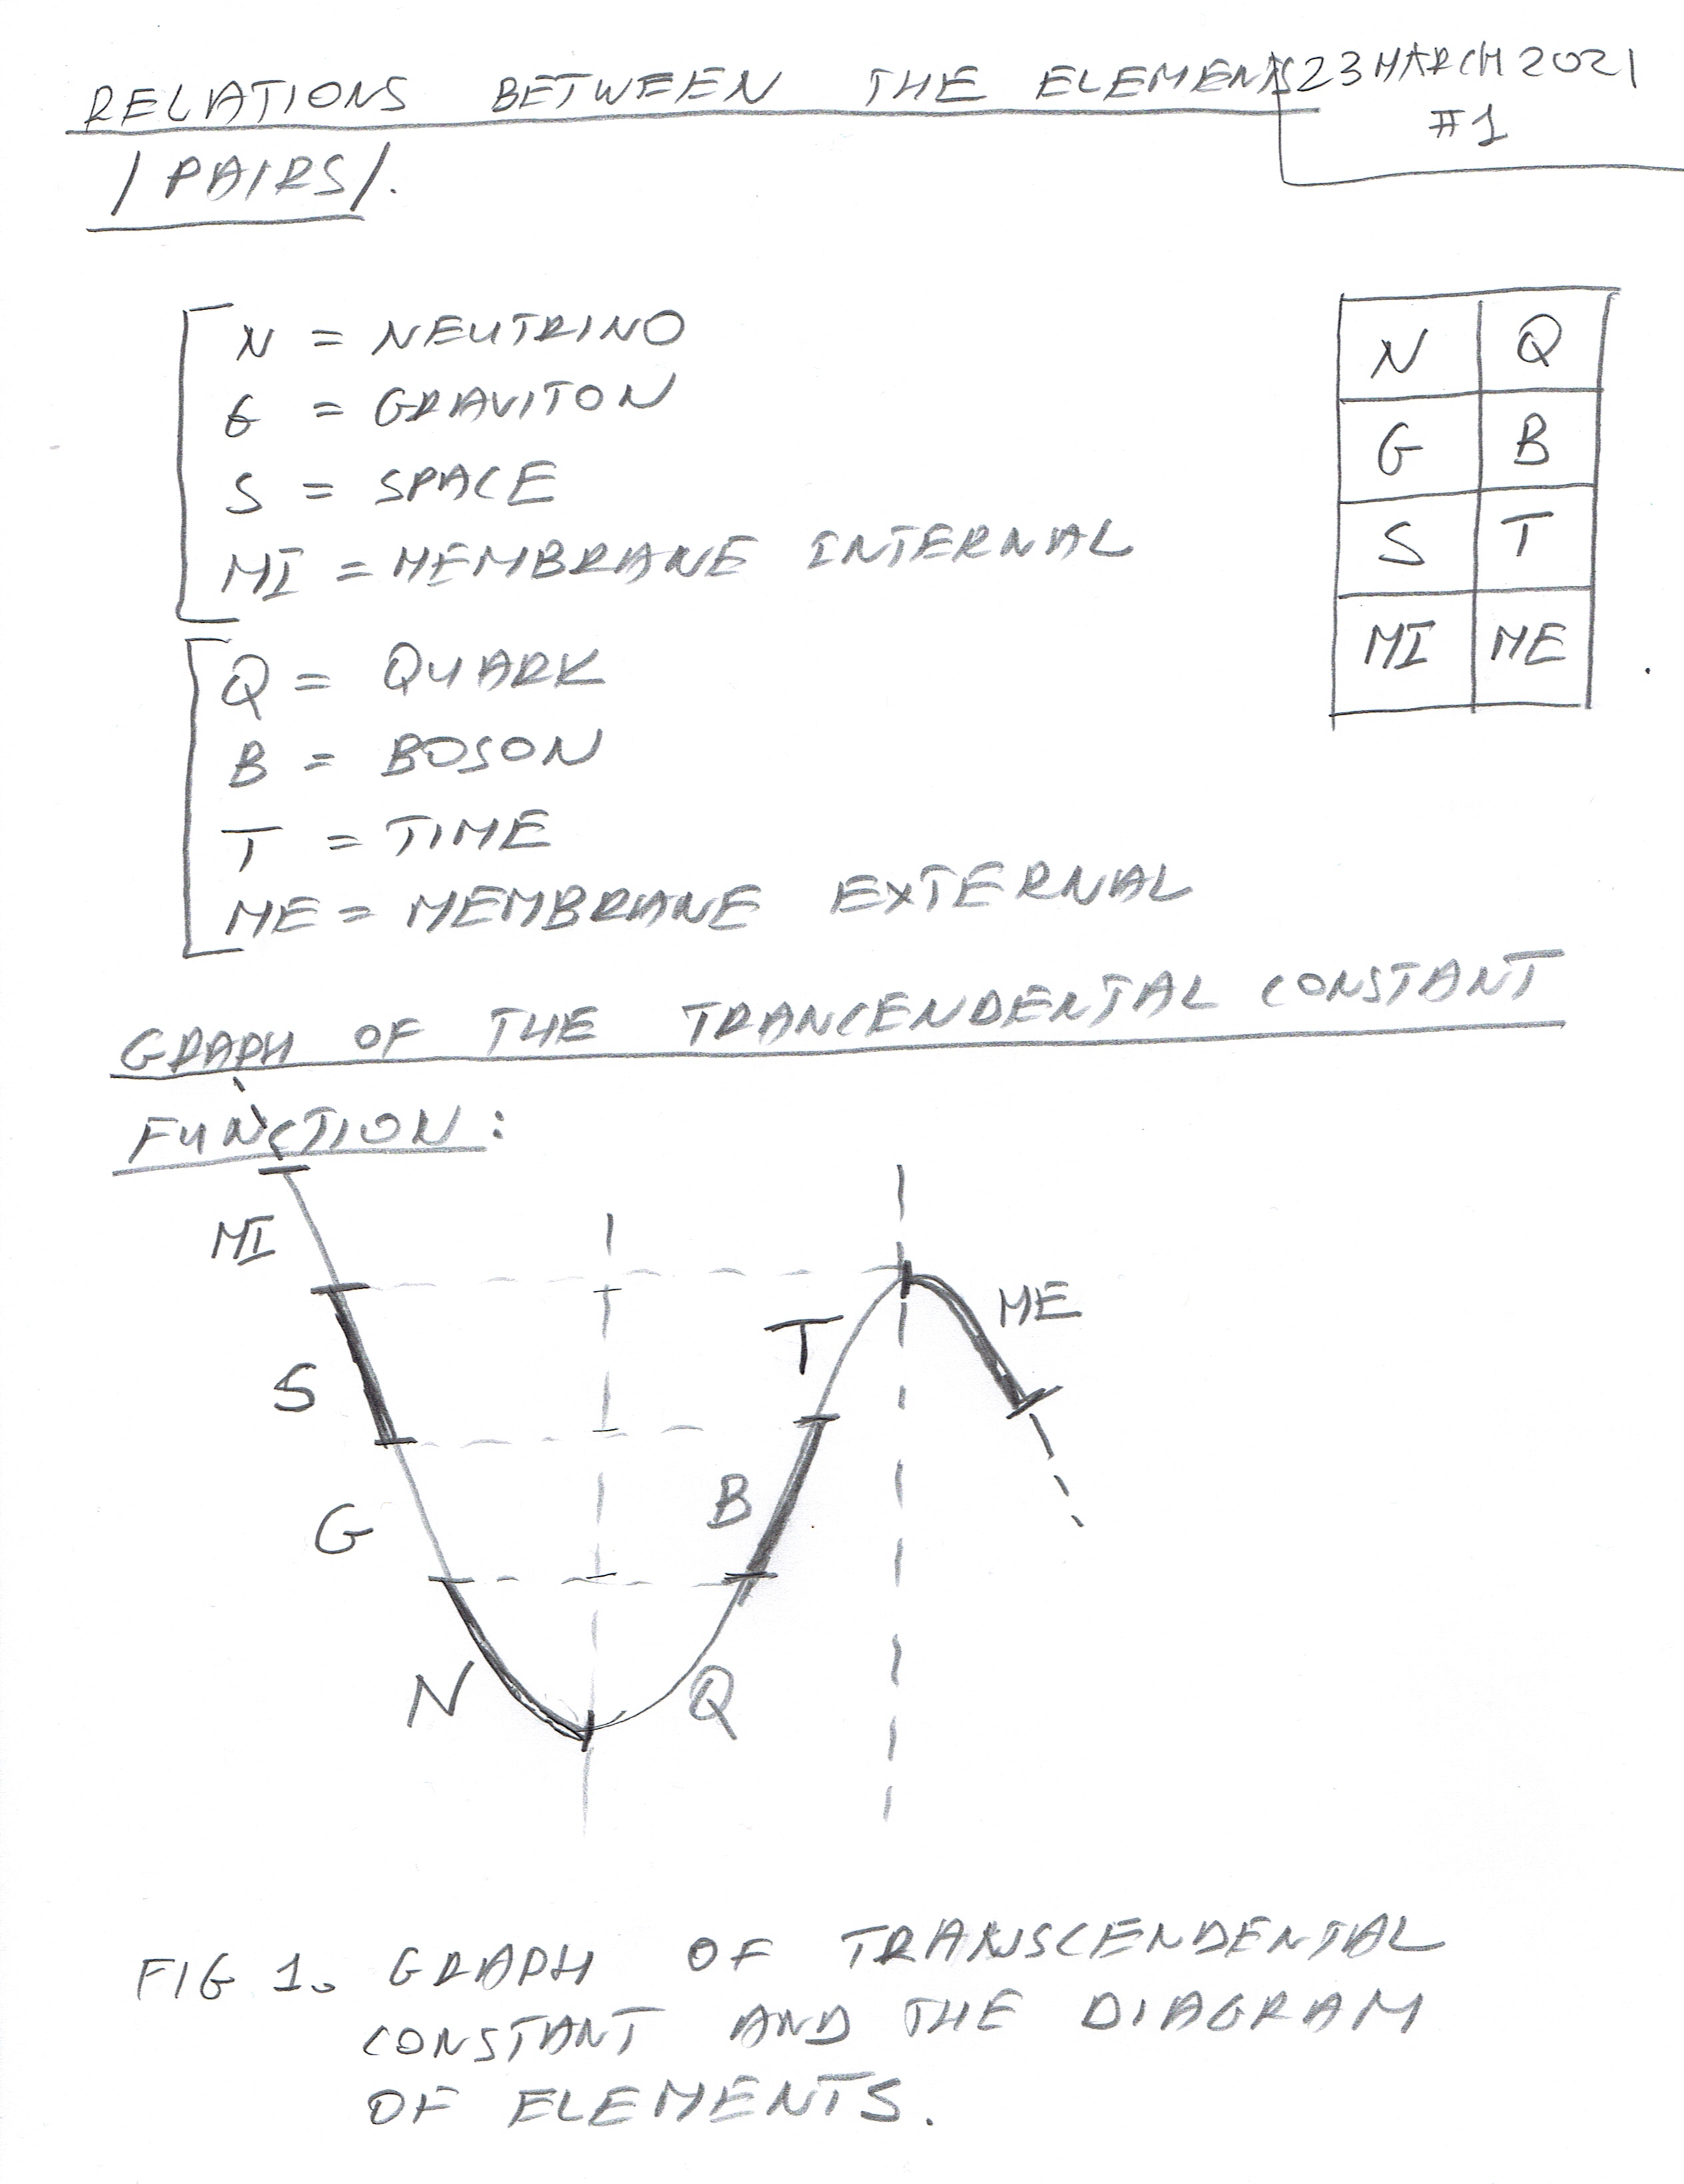 RELATIONS BETWEEN THE ELEMENTS
23 MARCH 2021
#1
/PAIRS/.
N = NEUTRINO
G = GRAVITON
S = SPACE
MI = MEMBRANE INTERNAL
Q = QUARK
B = BOSON
T = TIME
ME = MEMBRANE EXTERNAL
N Q
G B
S T
MI ME
GRAPH OF THE TRANCENDENTAL CONSTANT
FUNCTION:
MI
ME
T
S
B
G
N
Q
FIG 1. GRAPH OF TRANSCENDENTAL
CONSTANT AND THE DIAGRAM
OF ELEMENTS.